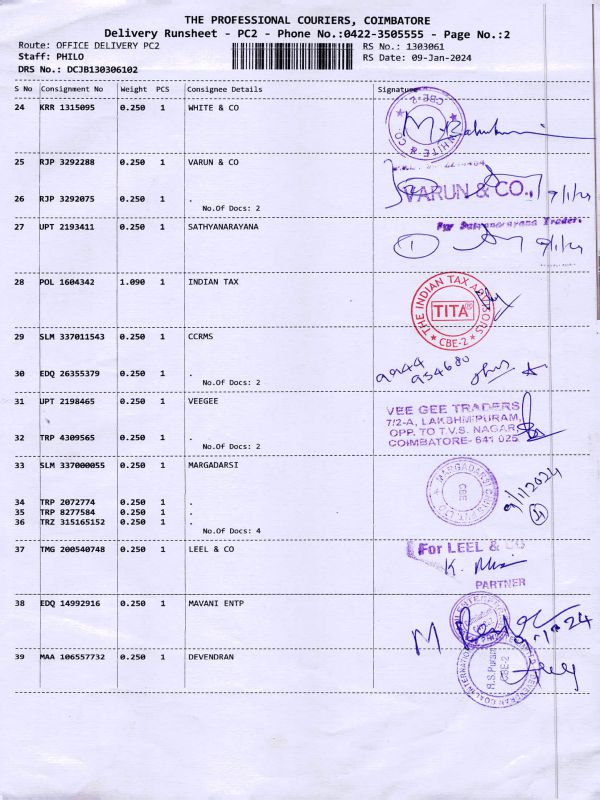 THE PROFESSIONAL COURIERS, COIMBATORE
Delivery Runsheet - PC2 - Phone No.:0422-3505555 - Page No.:2
Route: OFFICE DELIVERY PC2
RS No.: 1303061
Staff: PHILO
RS Date: 09-Jan-2024
DRS No.: DCJB130306102
S No Consignment No Weight PCS Consignee Details Signature
24 KRR 1315095 0.250 1 WHITE & CO
WHITE & CO CBE-2
25 RJP 3292288 0.250 1 VARUN & CO
VARUN & CO.,
26 RJP 3292075 0.250 1 .
No.Of Docs: 2
27 UPT 2193411 0.250 1 SATHYANARAYANA
For Satyanarayana Traders
1
28 POL 1604342 1.090 1 INDIAN TAX
THE INDIAN TAX ADVISORS
TITA
CBE-2
29 SLM 337011543 0.250 1 CCRMS
30 EDQ 26355379 0.250 1 .
No.Of Docs: 2
31 UPT 2198465 0.250 1 VEEGEE
VEE GEE TRADERS
7/2-A, LAKSHMIPURAM,
OPP. TO T.V.S. NAGAR,
COIMBATORE- 641 025
32 TRP 4309565 0.250 1 .
No.Of Docs: 2
33 SLM 337000055 0.250 1 MARGADARSI
MARGADARSI
CBE
9/1/2024
34 TRP 2072774 0.250 1 .
35 TRP 8277584 0.250 1 .
36 TRZ 315165152 0.250 1 .
No.Of Docs: 4
37 TMG 200540748 0.250 1 LEEL & CO
For LEEL & CO
K.
PARTNER
38 EDQ 14992916 0.250 1 MAVANI ENTP
M
39 MAA 106557732 0.250 1 DEVENDRAN
CBE-2